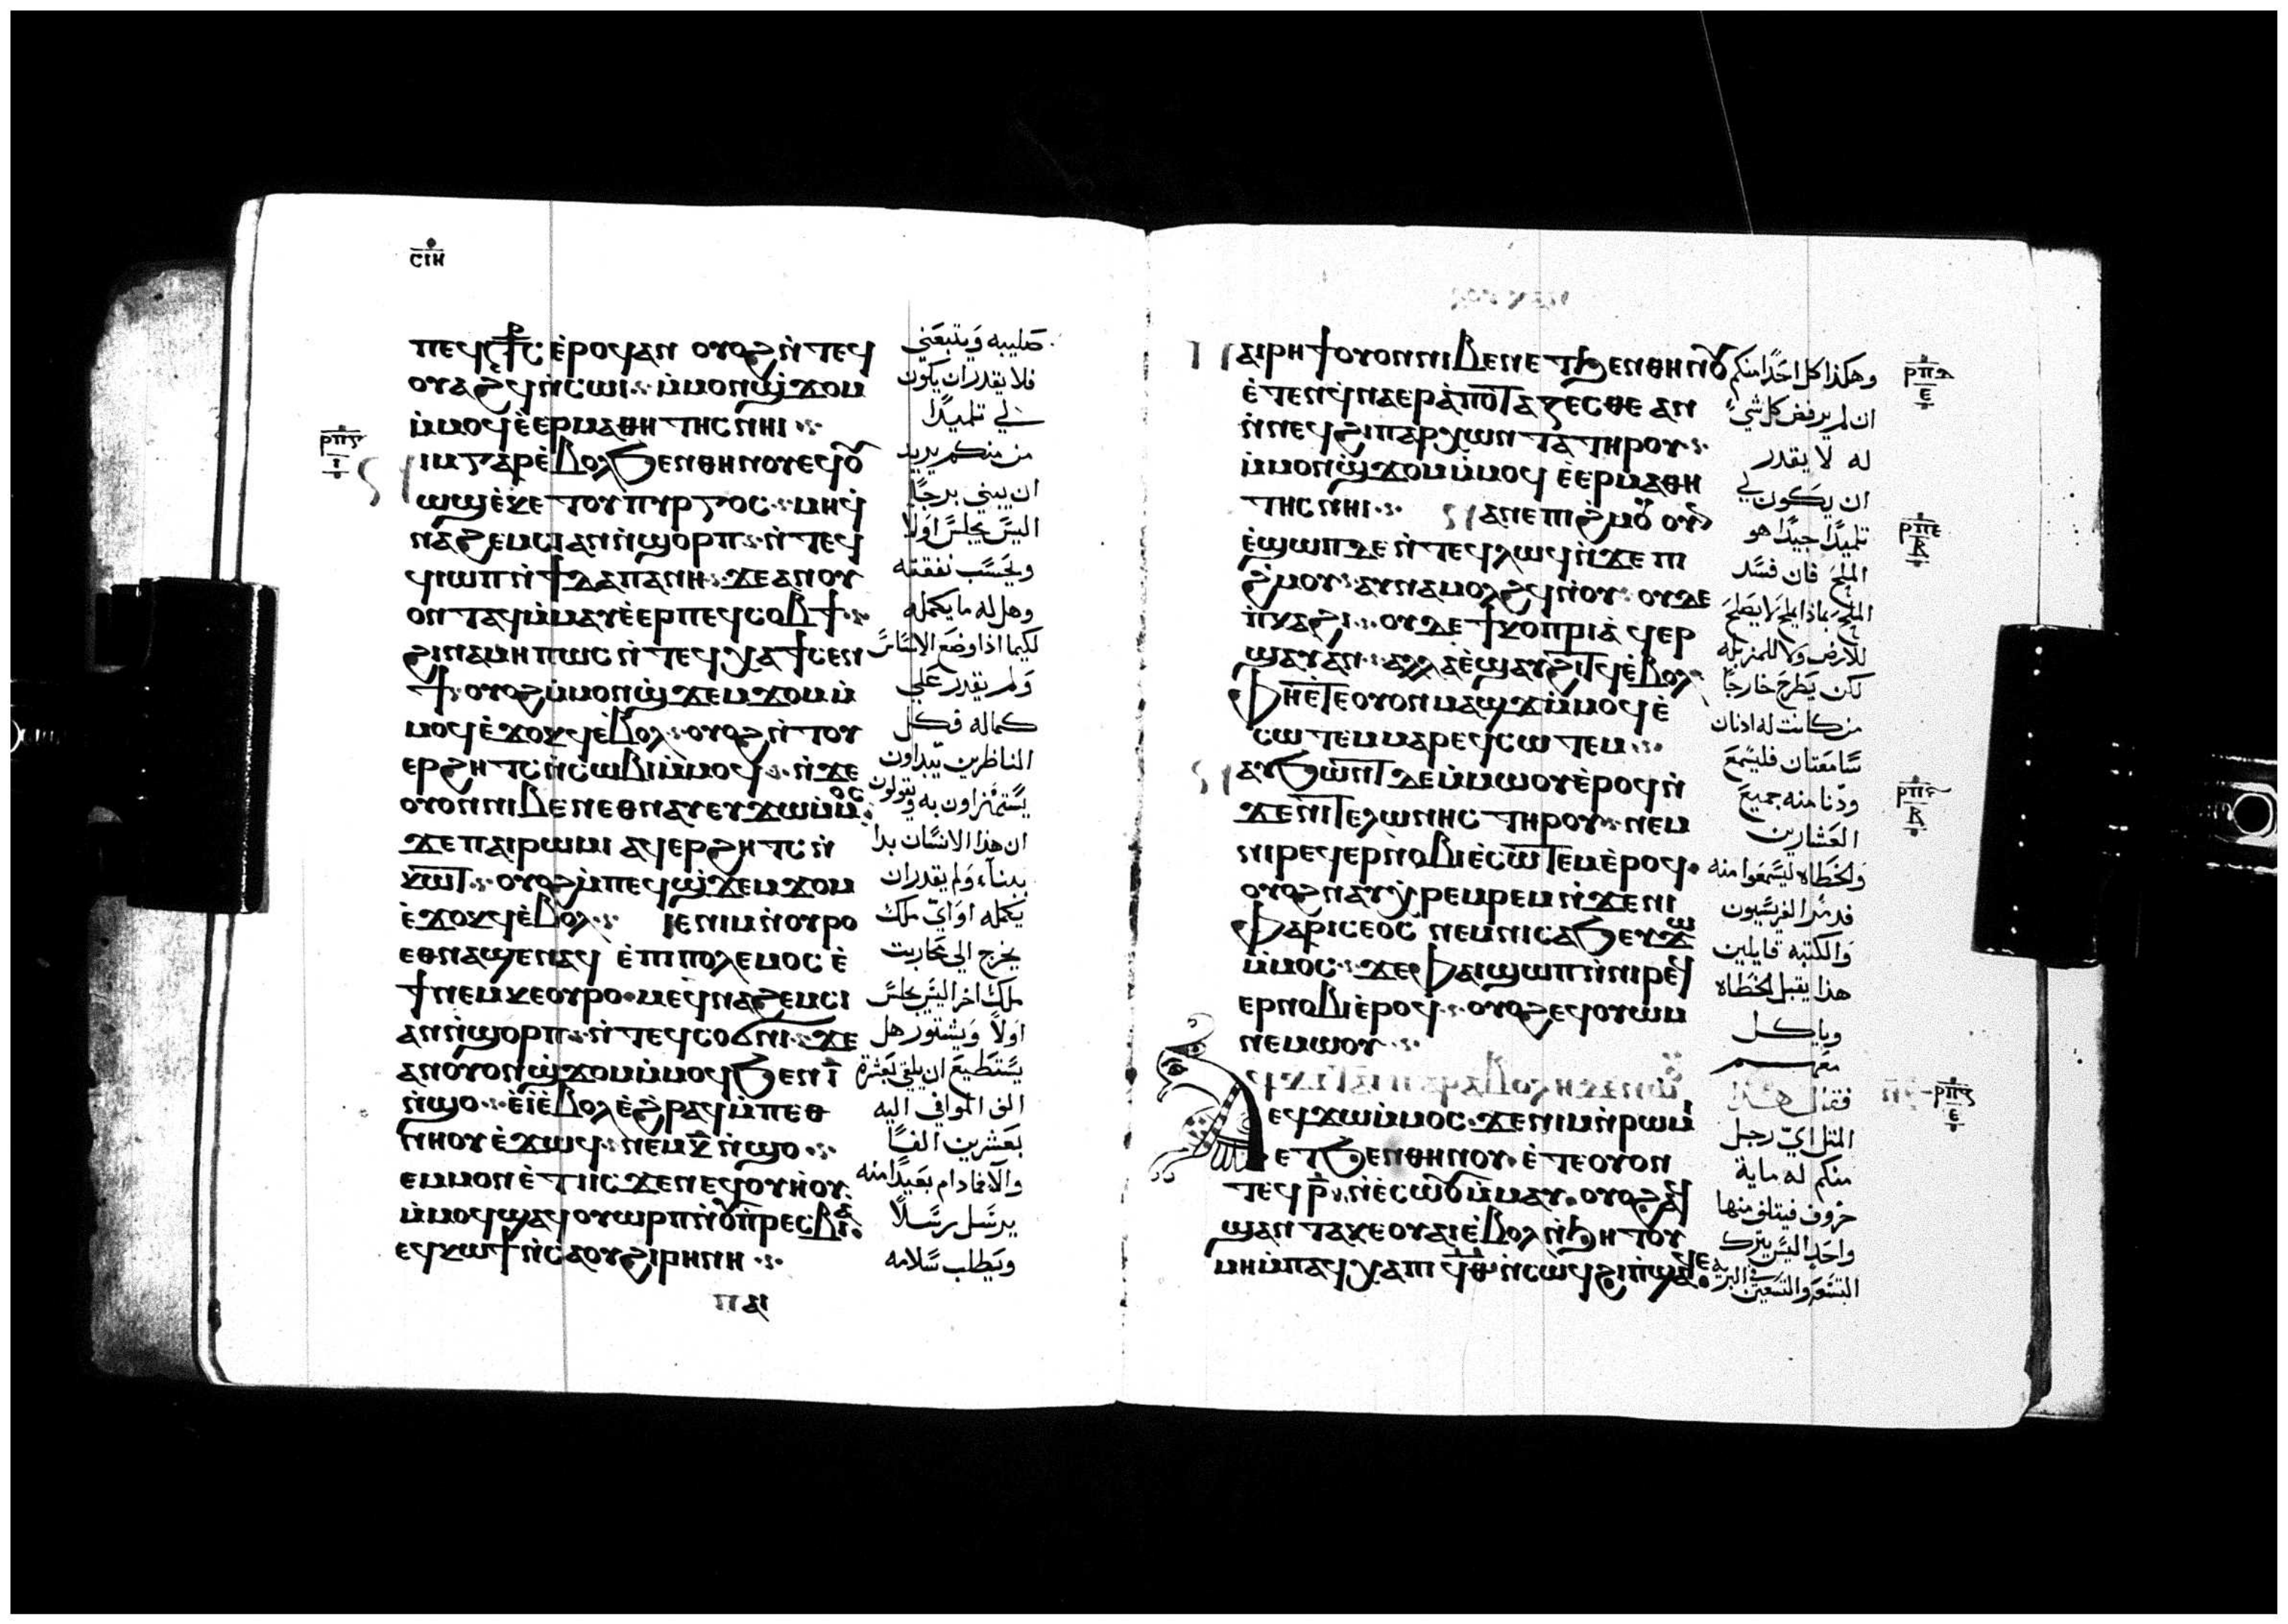 ⲥⲓⲏ
ⲡⲉϥⲥ̅⳨ⲥ ⲉ̀ⲣⲟϥ ⲁⲛ ⲟⲩⲟϩ ⲛ̀ⲧⲉϥ
ⲟⲩⲁϩϥ ⲛ̀ⲥⲱⲓ ⲙ̀ⲙⲟⲛ ϣϫⲟⲙ
ⲙ̀ⲙⲟϥ ⲉ̀ⲉⲣⲙⲁⲑⲏⲧⲏⲥ ⲛⲏⲓ
ⲛⲓⲙ ⲅⲁⲣ ⲉ̀ⲃⲟⲗ ϧⲉⲛ ⲑⲏⲛⲟⲩ ⲉϥⲟⲩ
ⲱϣ ⲉ̀ⲕⲉⲧ ⲟⲩⲡⲩⲣⲅⲟⲥ ⲙⲏ ϥ̀
ⲛⲁϩⲉⲙⲥⲓ ⲁⲛ ⲛ̀ϣⲟⲣⲡ ⲛ̀ⲧⲉϥ
ϥⲓⲱⲡ ⲛ̀ϯⲇⲁⲡⲁⲛⲏ ϫⲉ ⲁⲛ ⲟⲩ
ⲟⲛⲧⲁϥ ⲙ̀ⲙⲁⲩ ⲉ̀ⲉⲣⲡⲉϥⲥⲟⲃϯ
ϩⲓⲛⲁ ⲙⲏⲡⲱⲥ ⲛ̀ⲧⲉϥⲭⲁ ϯⲥⲉⲛ
ϯ ⲟⲩⲟϩ ⲙ̀ⲙⲟⲛ ϣϫⲉⲙϫⲟⲙ ⲙ̀
ⲙⲟϥ ⲉ̀ϫⲟⲕϥ ⲉ̀ⲃⲟⲗ ⲟⲩⲟϩ ⲛ̀ⲧⲟⲩ
ⲉⲣϩⲏⲧⲥ ⲛ̀ⲥⲱⲃⲓ ⲙ̀ⲙⲟϥ ⲛ̀ϫⲉ
ⲟⲩⲟⲛ ⲛⲓⲃⲉⲛ ⲉⲑⲛⲁⲩ ⲉⲩϫⲱ ⲙ̀ⲙⲟⲥ
ϫⲉ ⲡⲁⲓⲣⲱⲙⲓ ⲁϥⲉⲣϩⲏⲧⲥ ⲛ̀
ⲕⲱⲧ ⲟⲩⲟϩ ⲙ̀ⲡⲉϥϣϫⲉⲙϫⲟⲙ
ⲉ̀ϫⲟⲕϥ ⲉ̀ⲃⲟⲗ ⲓⲉ ⲛⲓⲙ ⲛ̀ⲟⲩⲣⲟ
ⲉⲑⲛⲁϣⲉⲛⲁϥ ⲉ̀ⲡⲓⲡⲟⲗⲉⲙⲟⲥ ⲉ̀
ϯ ⲛⲉⲙ ⲕⲉⲟⲩⲣⲟ ⲙⲉ ϥⲛⲁϩⲉⲙⲥⲓ
ⲁⲛ ⲛ̀ϣⲟⲣⲡ ⲛ̀ⲧⲉϥⲥⲟϭⲛⲓ ϫⲉ
ⲁⲛ ⲟⲩⲟⲛ ϣϫⲟⲙ ⲙ̀ⲙⲟϥ ϧⲉⲛ ⲓ̅
ⲛ̀ϣⲟ ⲉ̀ⲓ̀ ⲉ̀ⲃⲟⲗ ⲉ̀ϩⲣⲁϥ ⲙ̀ⲡⲉⲑ
ⲛⲏⲟⲩ ⲉ̀ϫⲱϥ ⲛⲉⲙ ⲕ̅ ⲛ̀ϣⲟ
ⲉⲙⲙⲟⲛ ⲉ̀ⲧⲓ ⲓⲥϫⲉⲛ ⲉϥⲟⲩⲏⲟⲩ
ⲙ̀ⲙⲟϥ ϣⲁϥⲟⲩⲱⲣⲡ ⲛ̀ⲟⲩⲡⲣⲉⲥⲃⲓⲁ
ⲉϥⲕⲱϯ ⲛ̀ⲥⲁ ⲟⲩϩⲓⲣⲏⲛⲏ
ⲣⲡⲅ
ⲓ
صليبه ويتبعني
فلا يقدر ان يكون
لي تلميدًا
من منكم يريد
ان يبني برجًا
اليس يجلس اولا
ويحسب نفقته
وهل له ما يكمله
لكيما اذا وضع الاساس
ولم يقدر علي
كماله فكل
الناظرين يبداون
يستهزاون به ويقولون
ان هذا الانسان بدا
ببناء ولم يقدر ان
يكمله او اي ملك
يخرج الي محاربت
ملك اخر اليس يجلس
اولاً ويشتور هل
يستطيع ان يلقي بعشرة
الف الموافي اليه
بعشرين الفًا
والا فما دام بعيدًا منه
يرسل رسلاً
ويطلب سلامه
ⲡⲁⲓ
ⲡⲁⲓⲣⲏϯ ⲟⲩⲟⲛ ⲛⲓⲃⲉⲛ ⲉⲧϧⲉⲛ ⲑⲏⲛⲟⲩ
ⲉ̀ⲧⲉⲛϥⲛⲁⲉⲣⲁ̀ⲡⲟⲧⲁⲍⲉⲥⲑⲉ ⲁⲛ
ⲛ̀ⲛⲉϥϩⲓⲡⲁⲣⲭⲱⲛⲧⲁ ⲧⲏⲣⲟⲩ
ⲙ̀ⲙⲟⲛ ϣϫⲟⲙ ⲙ̀ⲙⲟϥ ⲉ̀ⲉⲣⲙⲁⲑⲏ
ⲧⲏⲥ ⲛⲏⲓ ⲛⲁⲛⲉ ⲡⲓϩⲙⲟⲩ ⲟⲩⲛ
ⲉ̀ϣⲱⲡ ⲇⲉ ⲛ̀ⲧⲉϥⲗⲱϥ ⲛ̀ϫⲉ ⲡⲓ
ϩⲙⲟⲩ ⲁⲩⲛⲁⲙⲟⲗϩϥ ⲛ̀ⲟⲩ ⲟⲩⲇⲉ
ⲡ̀ⲕⲁϩⲓ ⲟⲩⲇⲉ ϯⲕⲟⲡⲣⲓⲁ̀ ϥⲉⲣ
ϣⲁⲩ ⲁⲛ ⲁⲗⲗⲁ ⲉ̀ϣⲁⲩϩⲓⲧϥ ⲉ̀ⲃⲟⲗ
ⲫⲏⲉ̀ⲧⲉ ⲟⲩⲟⲛ ⲙⲁϣϫ ⲙ̀ⲙⲟϥ ⲉ̀
ⲥⲱⲧⲉⲙ ⲙⲁⲣⲉϥⲥⲱⲧⲉⲙ
ⲛⲁⲩϧⲱⲛⲧ ⲇⲉ ⲙ̀ⲙⲱⲟⲩ ⲉ̀ⲣⲟϥ ⲛ̀
ϫⲉ ⲛⲓⲧⲉⲗⲱⲛⲏⲥ ⲧⲏⲣⲟⲩ ⲛⲉⲙ
ⲛⲓⲣⲉϥⲉⲣⲛⲟⲃⲓ ⲉ̀ⲥⲱⲧⲉⲙ ⲉ̀ⲣⲟϥ
ⲟⲩⲟϩ ⲛⲁⲩⲭⲣⲉⲙⲣⲉⲙ ⲛ̀ϫⲉ ⲛⲓ
ⲫⲁⲣⲓⲥⲉⲟⲥ ⲛⲉⲙ ⲛⲓⲥⲁϧ ⲉⲩϫⲱ
ⲙ̀ⲙⲟⲥ ϫⲉ ⲫⲁⲓ ϣⲱⲡ ⲛ̀ⲛⲓⲣⲉϥ
ⲉⲣⲛⲟⲃⲓ ⲉ̀ⲣⲟϥ ⲟⲩⲟϩ ⲉϥⲟⲩⲱⲙ
ⲛⲉⲙⲱⲟⲩ
ⲉϥϫⲱ ⲙ̀ⲙⲟⲥ ϫⲉ ⲛⲓⲙ ⲛ̀ⲣⲱⲙⲓ
ⲉⲧϧⲉⲛ ⲑⲏⲛⲟⲩ ⲉ̀ⲧⲉ ⲟⲩⲟⲛ
ⲧⲉϥ ⲣ̅ ⲛ̀ⲉ̀ⲥⲱⲟⲩ ⲙ̀ⲙⲁⲩ ⲟⲩⲟϩ ⲁϥ
ϣⲁⲛⲧⲁⲕⲉ ⲟⲩⲁⲓ ⲉ̀ⲃⲟⲗ ⲛ̀ϧⲏⲧⲟⲩ
ⲙⲏ ⲙ̀ⲡⲁϥⲭⲁ ⲡⲓϥⲑ ⲛ̀ⲥⲱϥ ϩⲓ ⲡ̀ϣⲁϥⲉ
وهكذا كل احدًا منكم
ان لم يرفض كل شيء
له لا يقدر
ان يكون لي
تلميدًا جيدًا هو
الملح فان فسد
الملح بماذا يملح لا يصلح
للارض ولا للمزبله
لكن يطرح خارجًا
من كانت له ادنان
سامعتان فليسمع
ودنا منه جميع
العشارين
والخطاه ليسمعوا منه
فدمر الفريسيون
والكتبه قايلين
هذا يقبل الخطاه
وياكل
معهم
فقال هذا
المثل اي رجل
منكم له ماية
خروف فيتلف منها
واحد اليس يترك
التسعه والتسعين في البريه
ⲣⲡⲇ
ⲉ
ⲣⲡⲉ
ⲃ
ⲣⲡⲋ
ⲃ
ⲣⲡⲍ
ⲉ